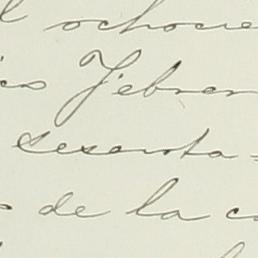 l ochocie
ico Febrer
sesenta-
de la c